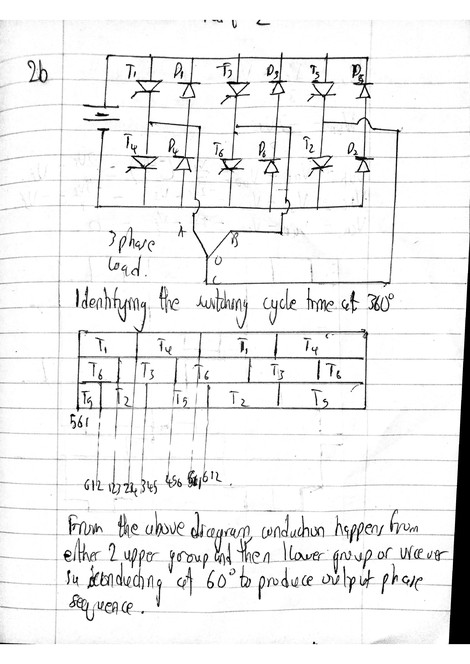 2b
T1 D1 T3 D3 T5 D5
T4 D4 T6 D6 T2 D2
A B
3 phase
load.
O
C
Identifying the switching cycle time at 360°
T1 T4 T1 T4
T6 T3 T6 T3 T6
T5 T2 T5 T2 T5
561
612 123 234 345 456 561 612.
From the above diagram, conduction happens from
either 2 upper group and then 1 lower group or vicever
sa conducting at 60° to produce output phase
sequence.